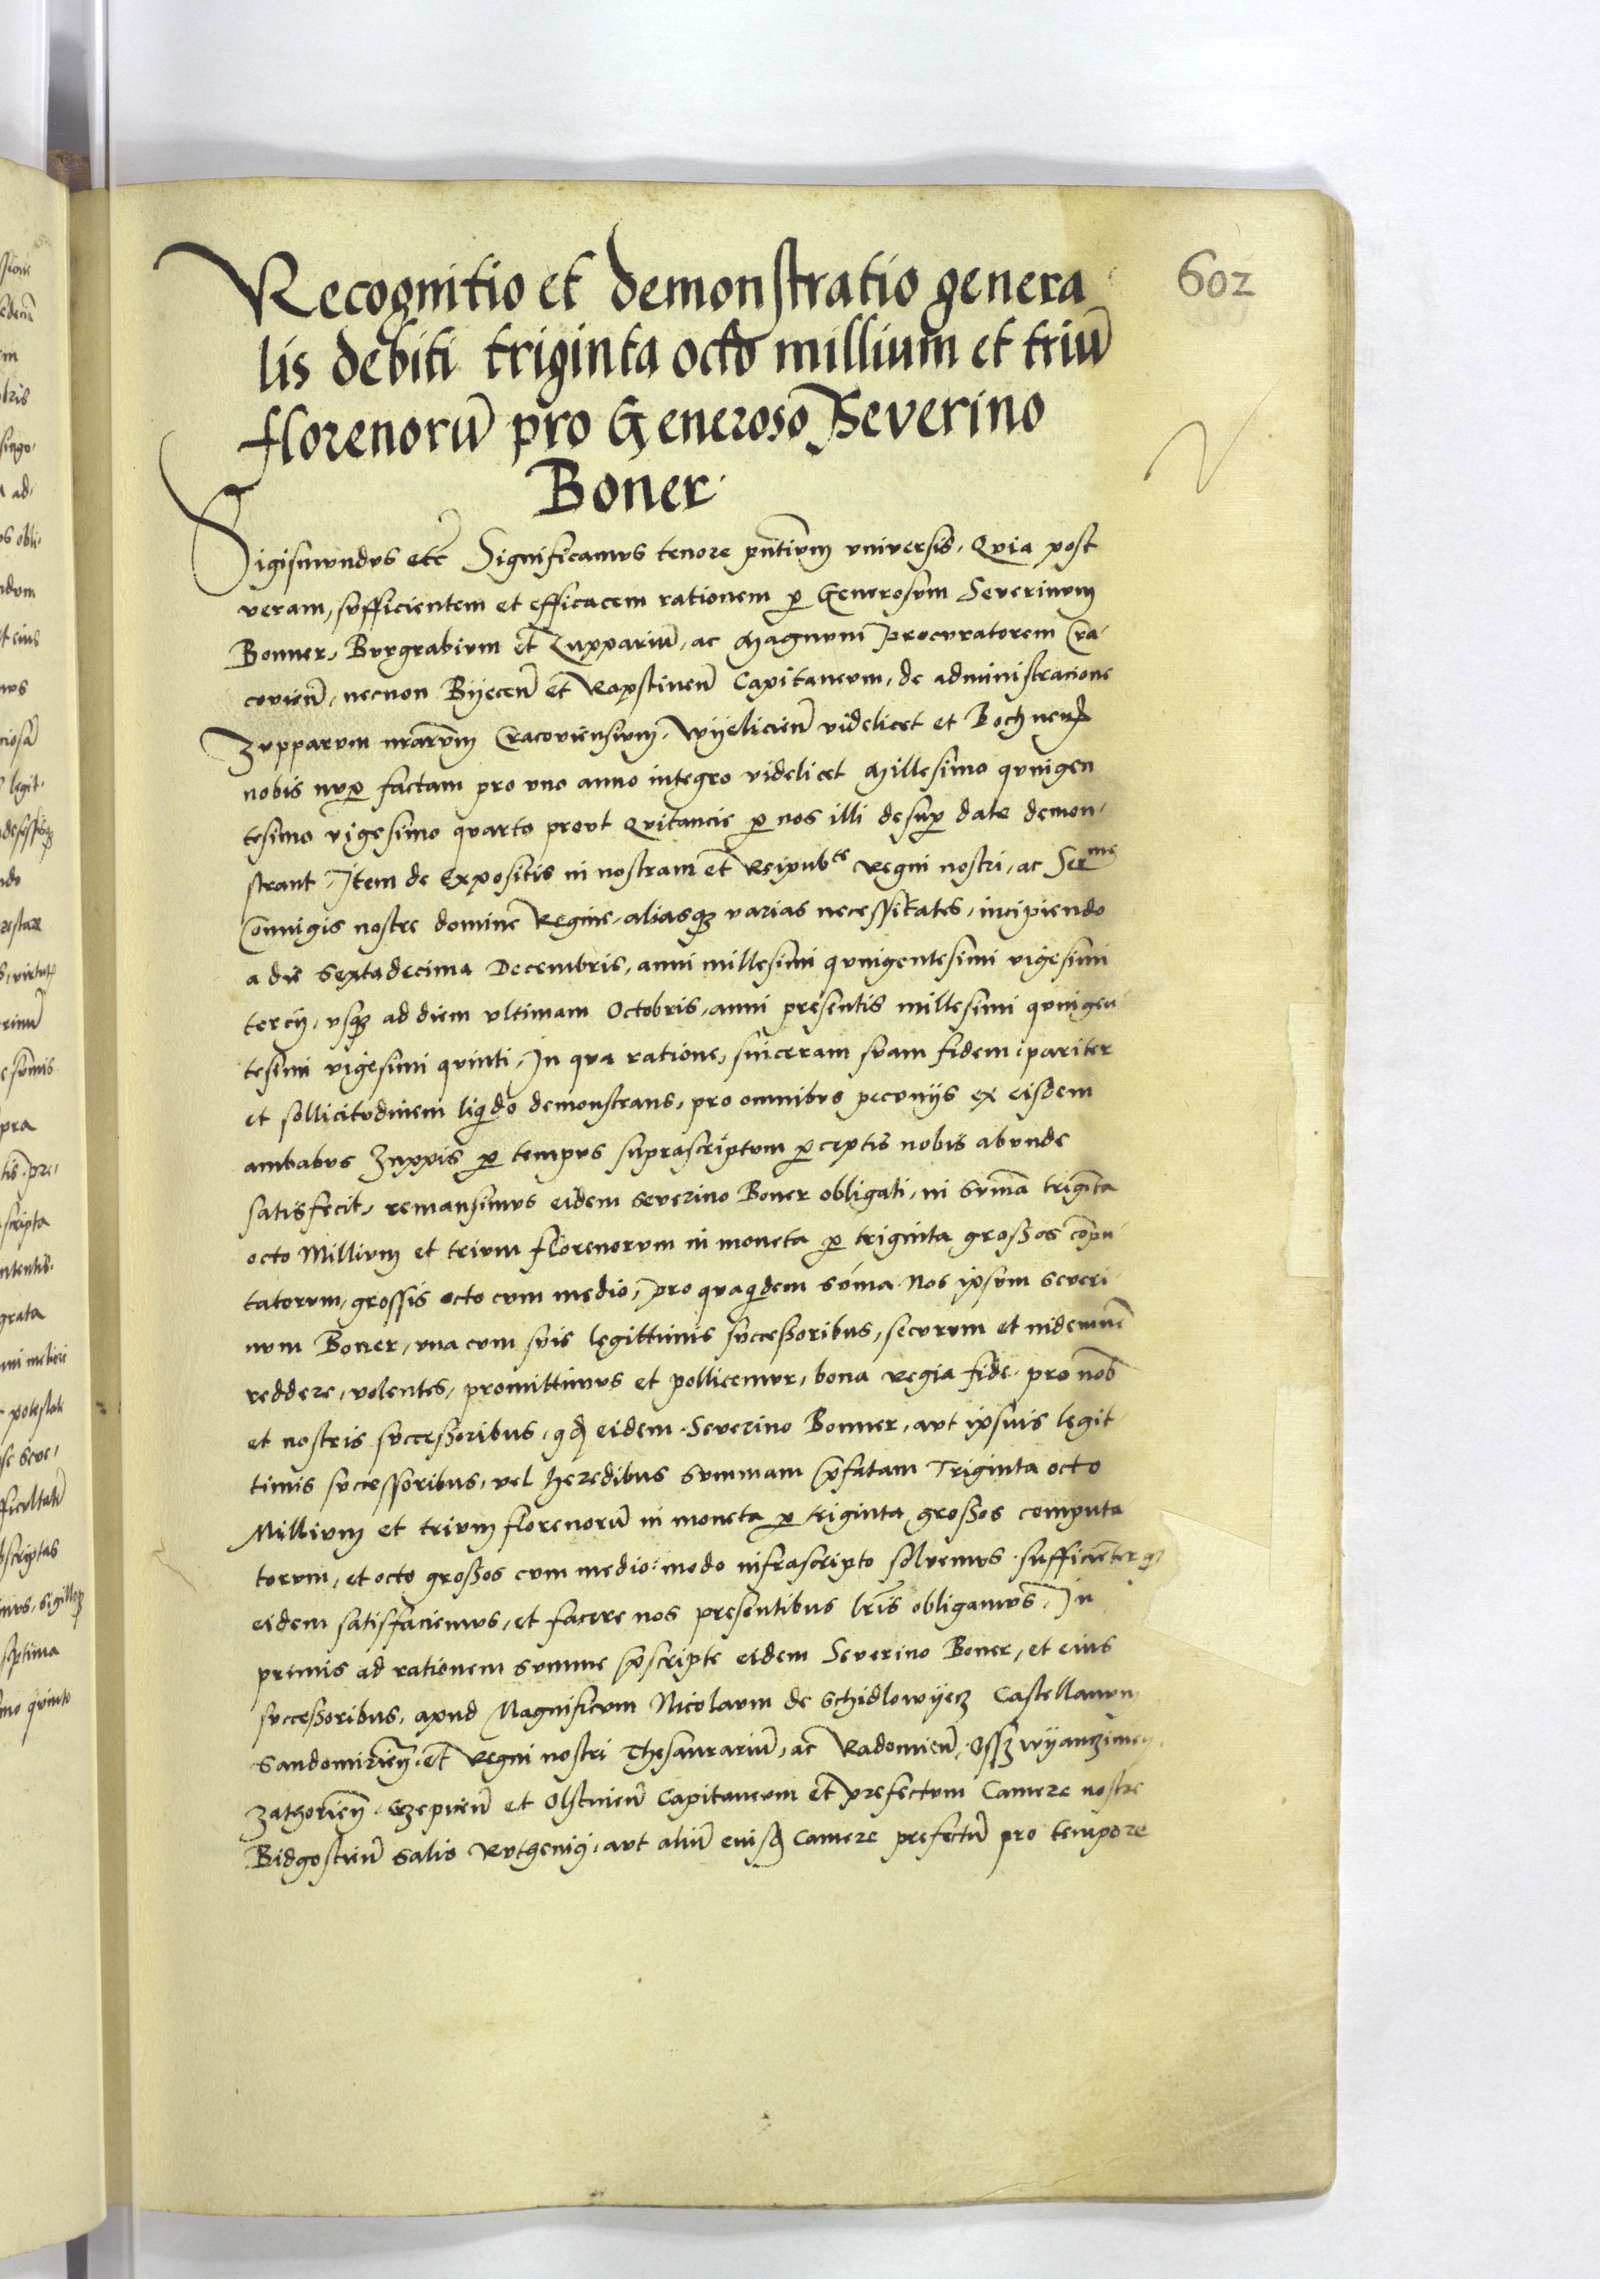 602
Recognitio et demonstratio genera
lis debiti triginta octo millium et triū
florenorū pro Generoso Severino
Boner.
Sigismundus etc̄ Significamus tenore pn̄tium universis. Quia post
veram, sufficientem et efficacem rationem ꝑ Generosum Severinum
Bonner, Burgrabium et Zupparium̄, ac Magnum Procuratorem Cra-
covien̄, necnon Byecen̄ et Rapstinen̄ Capitaneum, de administracione
Zupparum nrārum Cracoviensium, Wyelicien̄ videlicet et Bochnen̄
nobis nuꝑ factam pro uno anno integro videlicet Millesimo quingen
tesimo vigesimo quarto prout Quitancie ꝑ nos illi desuꝑ date demon-
strant, Item de Expositis in nostram et Reipub^ce Regni nostri, ac Ser^me
Coniugis nostre domine Regine, aliasqꝫ varias necessitates, incipiendo
a die Sexta decima Decembris, anni millesimi quingentesimi vigesimi
tercij, usqꝫ ad diem ultimam Octobris, anni presentis millesimi quingen
tesimi vigesimi quinti, In qua ratione, sinceram suam fidem, pariter
et sollicitudinem liqͥdo demonstrans, pro omnibus pecunijs ex eisdem
ambabus Zuppis ꝑ tempus suprascriptum ꝑceptis nobis abunde
satisfecit, remansimus eidem Severino Boner obligati, in Sum̄a triginta
octo Millium et trium florenorum in moneta ꝑ triginta grossos cōpu
tatorum, grossis octo cum medio, Pro quaqͥdem sum̄a Nos ipsum Severi
num Boner, una cum suis legittimis successoribus, securum et indemnē
reddere, volentes, promittimus et pollicemur, bona Regia fide, pro nob̄
et nostris successoribus, qꝫ eidem Severino Bonner, aut ipsius legit
timis successoribus, vel heredibus Summam p̄fatam Triginta octo
Millium et trium florenorū in moneta ꝑ triginta grossos computa
torum, et octo grossos cum medio, modo infrascripto solvemus, sufficienterqꝫ
eidem satisfaciemus, et facere nos presentibus lrīs obligamus, In
primis ad rationem Summe p̄scripte eidem Severino Boner, et eius
successoribus, apud Magnificum Nicolaum de Schidlowyecz Castellanum
Sandomirien̄, et Regni nostri Thesaurariū, ac Radomien̄, Osszwyanczimen̄,
Zathorien̄, Gzepicen̄ et Olstinen̄ Capitaneum et prefectum Camere nostre
Bidgostien̄ Salis Ruthenici, aut aliū eiusdꝫ Camere prefectū pro tempore